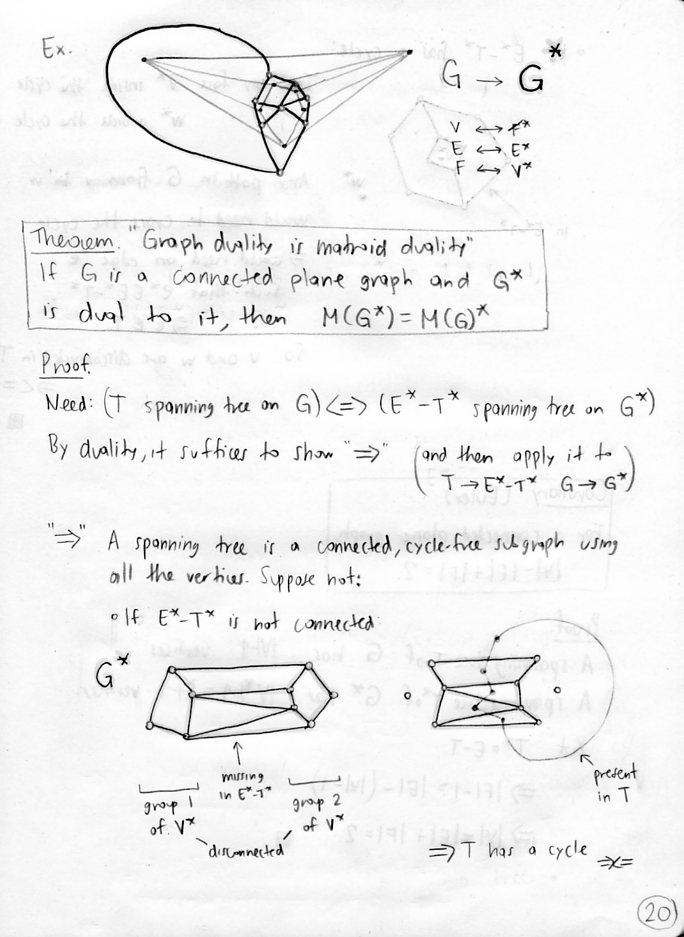 Ex.
G → G*
V ↔ F*
E ↔ E*
F ↔ V*
Theorem. "Graph duality is matroid duality"
If G is a connected plane graph and G*
is dual to it, then M(G*) = M(G)*
Proof.
Need: (T spanning tree on G) <=> (E*-T* spanning tree on G*)
By duality, it suffices to show "=>" (and then apply it to
T → E*-T* G → G*)
"=>" A spanning tree is a connected, cycle-free subgraph using
all the vertices. Suppose not:
• If E*-T* is not connected
G*
missing
in E*-T*
group 1
of V*
group 2
of V*
disconnected
present
in T
=> T has a cycle =><=
20